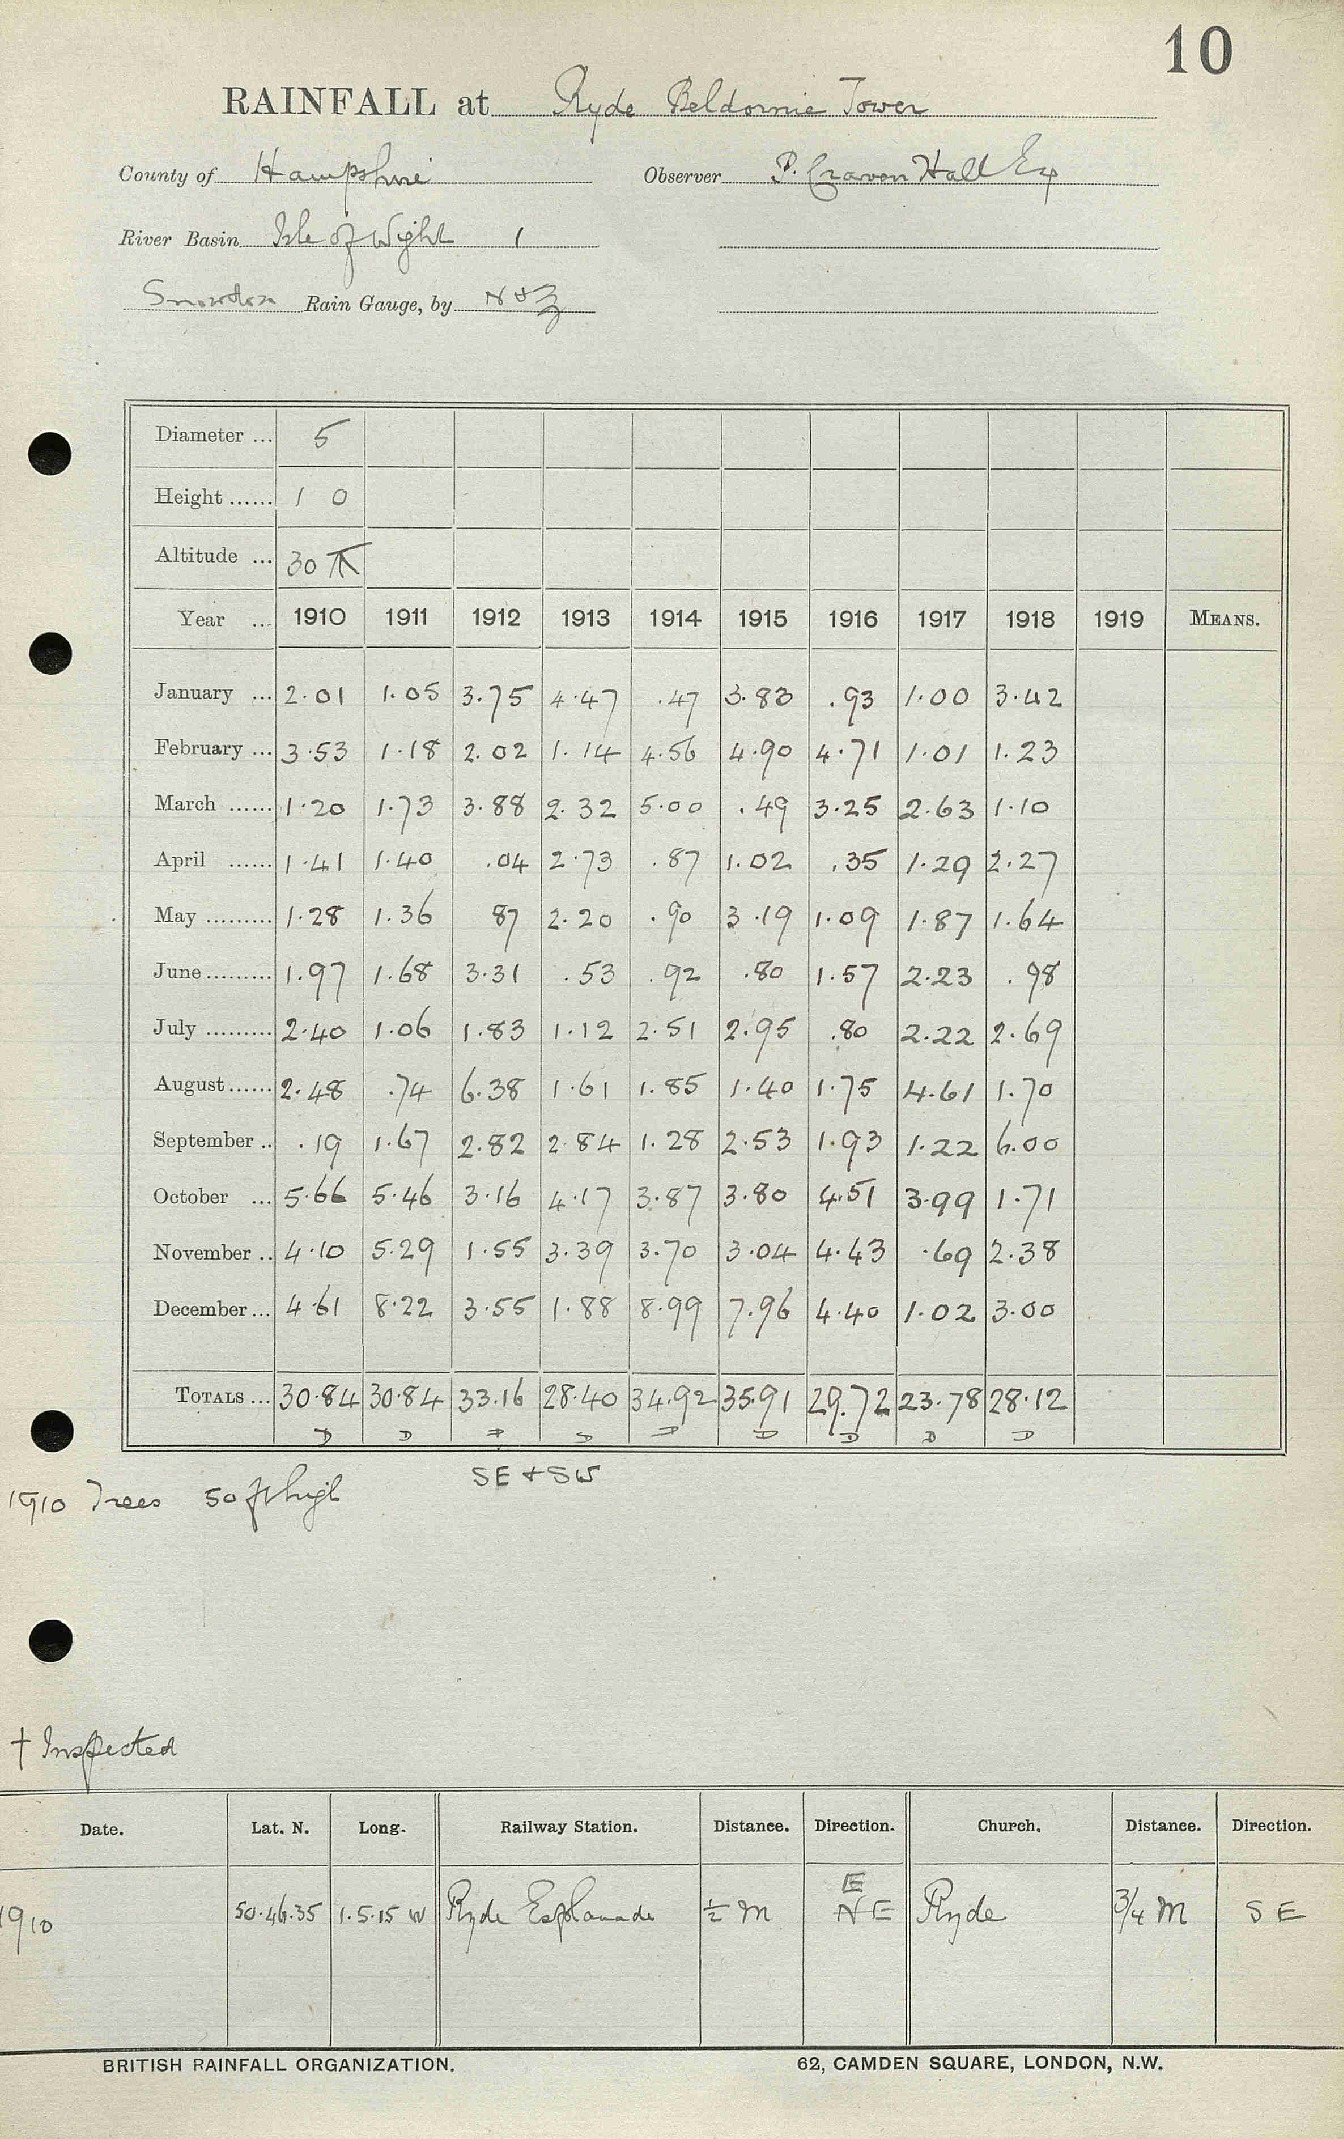 10
RAINFALL at Ryde Beldornie Tower
County of Hampshire Observer P. Craven Hall Esq
River Basin Isle of Wight 1
Snowdon Rain Gauge, by N & Z
Diameter ... 5
Height ...... 1 0
Altitude ... 30 ft
Year ... 1910 1911 1912 1913 1914 1915 1916 1917 1918 1919 MEANS.
January ... 2.01 1.05 3.75 4.47 .47 3.83 .93 1.00 3.42
February ... 3.53 1.18 2.02 1.14 4.56 4.90 4.71 1.01 1.23
March ...... 1.20 1.73 3.88 2.32 5.00 .49 3.25 2.63 1.10
April ...... 1.41 1.40 .04 2.73 .87 1.02 .35 1.29 2.27
May ......... 1.28 1.36 87 2.20 .90 3.19 1.09 1.87 1.64
June ......... 1.97 1.68 3.31 .53 .92 .80 1.57 2.23 .98
July ......... 2.40 1.06 1.83 1.12 2.51 2.95 .80 2.22 2.69
August ...... 2.48 .74 6.38 1.61 1.85 1.40 1.75 4.61 1.70
September .. .19 1.67 2.82 2.84 1.28 2.53 1.93 1.22 6.00
October ... 5.66 5.46 3.16 4.17 3.87 3.80 4.51 3.99 1.71
November .. 4.10 5.29 1.55 3.39 3.70 3.04 4.43 .69 2.38
December ... 4.61 8.22 3.55 1.88 8.99 7.96 4.40 1.02 3.00
TOTALS ... 30.84 30.84 33.16 28.40 34.92 35.91 29.72 23.78 28.12
D D D D D D D D D
1910 Trees 50 ft high SE + SW
† Inspected
Date. Lat. N. Long. Railway Station. Distance. Direction. Church. Distance. Direction.
E
1910 50.46.35 1.5.15 W Ryde Esplanade ½ m NE Ryde ¾ m SE
BRITISH RAINFALL ORGANIZATION. 62, CAMDEN SQUARE, LONDON, N.W.